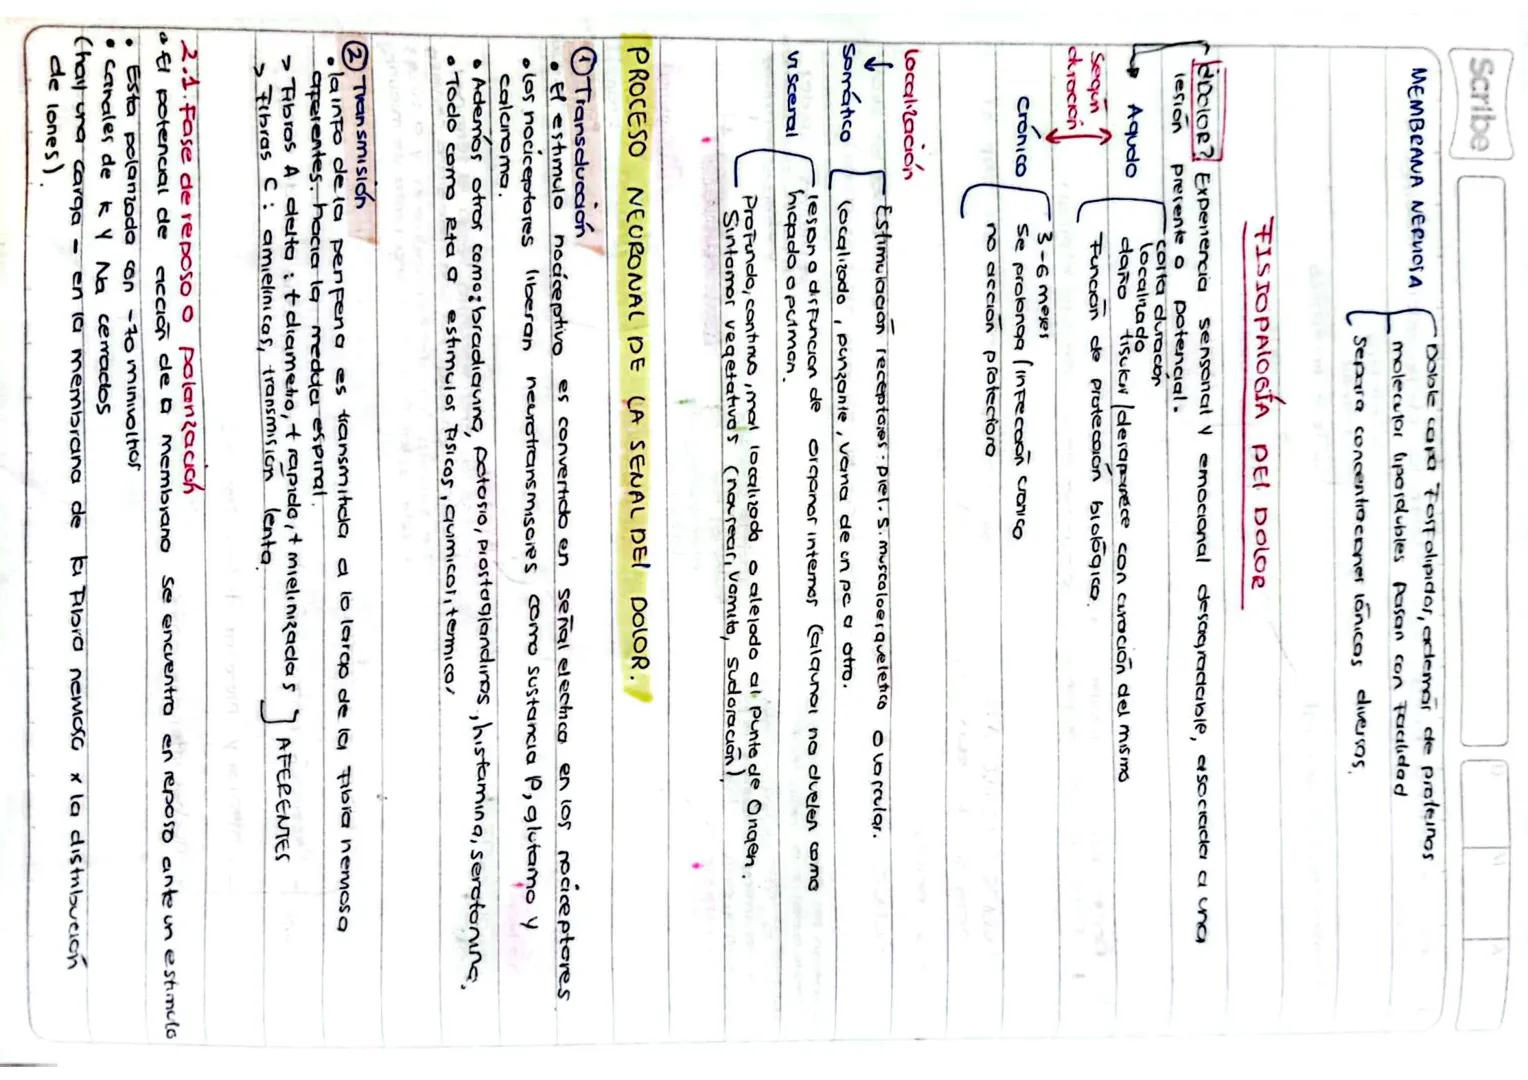 Scribe
MEMBRANA NERVIOSA
Doble capa Fosfolipidos, además de proteinas
moleculas liposolubles pasan con Facilidad
Separa concentraciones iónicas diversas.
FISIOPALOGÍA DEL DOLOR
¿DOLOR? Experiencia sensorial y emocional desagradable, asociada a una
lesión presente o potencial.
Según
duración
Agudo
corta duración
Localizado
daño tisular / desaparece con curación del mismo
Función de protección biológica.
Crónico
3-6 meses
Se prolonga (infección cronica
no acción protectora
Localización
Somático
Estimulación receptores. piel. S. muscoloesqueletico o vascular.
Localizado, punzante, varia de un pe a otro.
Visceral
lesion o disfuncion de organos internos (algunos no duelen como
higado o pulmon.
Profundo, continuo, mal localizado o alejado al punto de Origen.
Sintomas vegetativos (nauseas, Vomito, sudoración).
PROCESO NEURONAL DE LA SEÑAL DEL DOLOR.
① Transducción
• El estimulo nociceptivo es convertido en señal electrica en los nociceptores
• los nociceptores liberan neurotransmisores como sustancia P, glutamo y
calcinoma.
• Además otros como: bradiquina, potasio, prostaglandinas, histamina, serotonina.
• Todo como rta a estimulos Fisicos, quimicos, termicos
② Transmisión
• la info de la periperia es transmitida a lo largo de la Fibra nerviosa
aperentes hacia la medula espinal.
> Fibras A delta: + diametro, + rapido, + mielinizadas
> Fibras C: amielinicas, transmisión lenta
AFERENTES
2.1. Fase de reposo o polarización
• El potencial de acción de a membrana se encuentra en reposo ante un estimulo
• Esta polarizado con -70 minivoltios
• Canales de K y Na cerrados
(hay una carga - en la membrana de la Fibra nerviosa x la distribución
de iones).